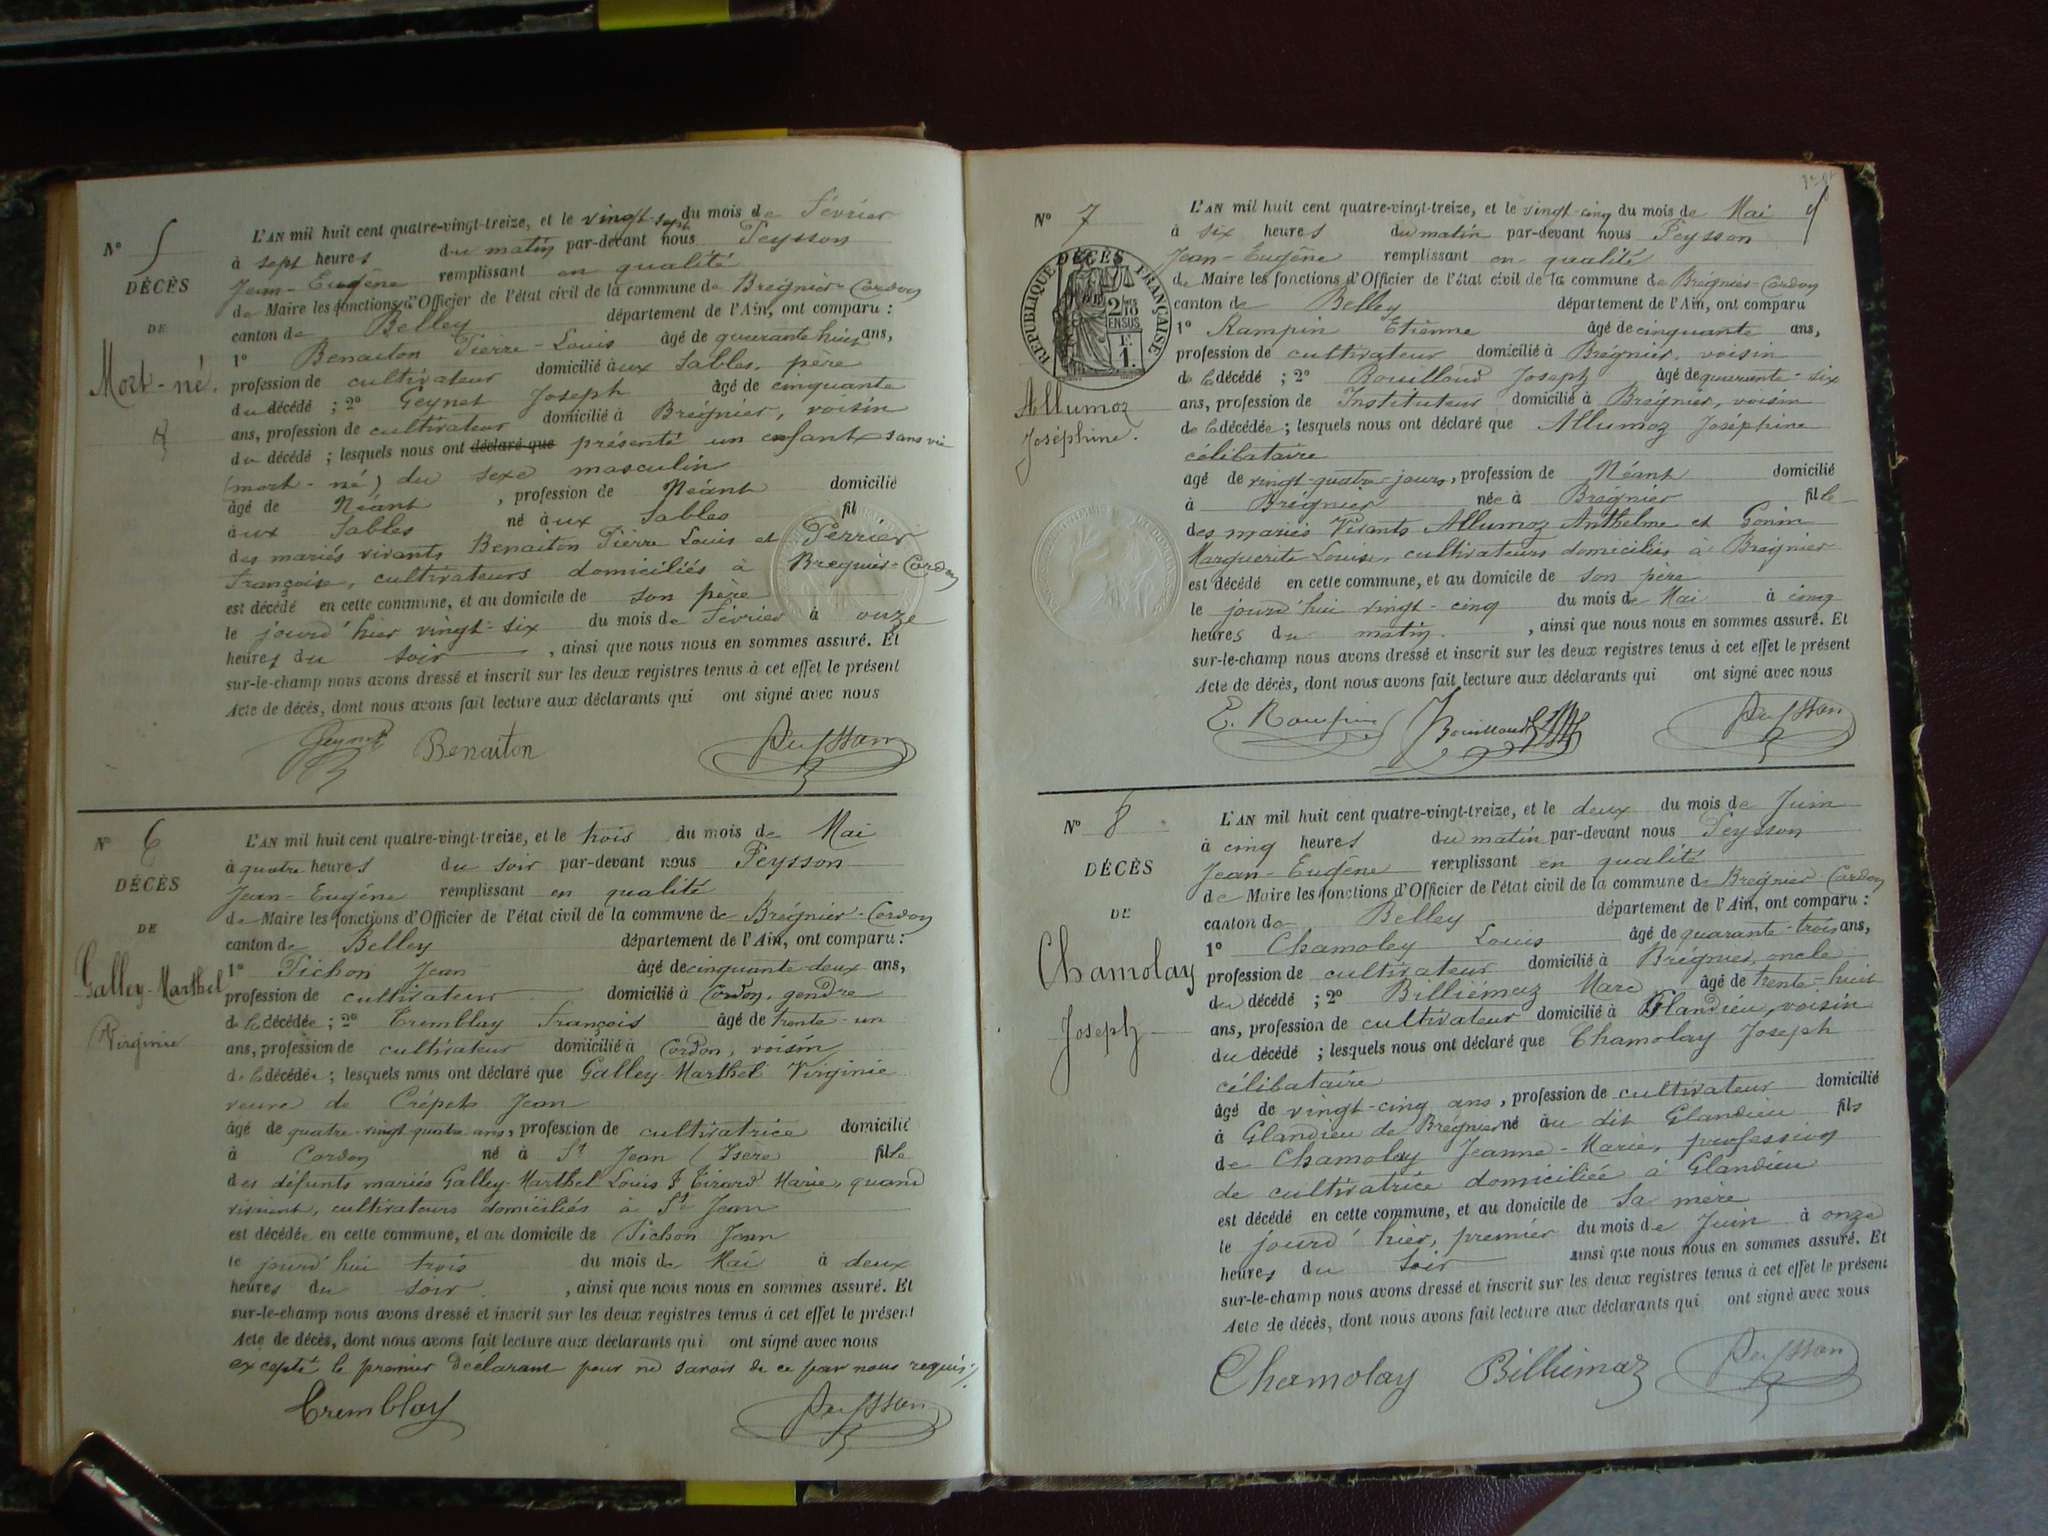 N° 5
DÉCÈS
DE
Mort-né.
L'AN mil huit cent quatre-vingt-treize, et le vingt-sept du mois de Février
à sept heures du matin par-devant nous Peysson
Jean-Eugène remplissant en qualité
de Maire les fonctions d'Officier de l'état civil de la commune de Brégnier-Cordon
canton de Belley département de l'Ain, ont comparu :
1° Benaiton Pierre-Louis âgé de quarante huit ans,
profession de cultivateur domicilié aux Sables, père
du décédé ; 2° Geynet Joseph âgé de cinquante
ans, profession de cultivateur domicilié à Brégnier, voisin
du décédé ; lesquels nous ont déclaré que présenté un enfant sans vie
(mort-né) du sexe masculin
âgé de Néant, profession de Néant domicilié
aux Sables né aux Sables fil
des mariés vivants Benaiton Pierre Louis et Perrier
Françoise, cultivateurs domiciliés à Bregnier-Cordon
est décédé en cette commune, et au domicile de son père
le jourd'hier vingt-six du mois de Février à onze
heures du soir, ainsi que nous nous en sommes assuré. Et
sur-le-champ nous avons dressé et inscrit sur les deux registres tenus à cet effet le présent
Acte de décès, dont nous avons fait lecture aux déclarants qui ont signé avec nous
Geynet Benaiton Peysson
N° 6
DÉCÈS
DE
Galley-Marthel
Virginie
L'AN mil huit cent quatre-vingt-treize, et le trois du mois de Mai
à quatre heures du soir par-devant nous Peysson
Jean-Eugène remplissant en qualité
de Maire les fonctions d'Officier de l'état civil de la commune de Brégnier-Cordon
canton de Belley département de l'Ain, ont comparu :
1° Pichon Jean âgé de cinquante-deux ans,
profession de cultivateur domicilié à Cordon, gendre
de la décédée ; 2° Tremblay François âgé de trente-un
ans, profession de cultivateur domicilié à Cordon, voisin
de la décédée ; lesquels nous ont déclaré que Galley-Marthel Virginie
veuve de Crépets Jean
âgé de quatre-vingt quatre ans, profession de cultivatrice domicilié
à Cordon né à St Jean (Isere fille
des défunts mariés Galley-Marthel Louis & Tirard Marie, quand
vivaient, cultivateurs domiciliés à St Jean
est décédée en cette commune, et au domicile de Pichon Jean
le jourd'hui trois du mois de Mai à deux
heures du soir, ainsi que nous nous en sommes assuré. Et
sur-le-champ nous avons dressé et inscrit sur les deux registres tenus à cet effet le présent
Acte de décès, dont nous avons fait lecture aux déclarants qui ont signé avec nous
excepté le premier déclarant pour ne savoir de ce par nous requis.
Tremblay Peysson
N° 7
DÉCÈS
RÉPUBLIQUE FRANÇAISE
2/10 EN SUS
1 F.
Allumoz
Joséphine.
L'AN mil huit cent quatre-vingt-treize, et le vingt-cinq du mois de Mai
à six heures du matin par-devant nous Peysson
Jean-Eugène remplissant en qualité
de Maire les fonctions d'Officier de l'état civil de la commune de Brégnier-Cordon
canton de Belley département de l'Ain, ont comparu
1° Rampin Etienne âgé de cinquante ans,
profession de cultivateur domicilié à Brégnier, voisin
de la décédé ; 2° Bouilloud Joseph âgé de quarante-six
ans, profession de Instituteur domicilié à Brégnier, voisin
de la décédée ; lesquels nous ont déclaré que Allumoz Joséphine
célibataire
âgé de vingt-quatre jours, profession de Néant domicilié
à Brégnier née à Brégnier fille
des mariés vivants Allumoz Anthelme et Gonin
Marguerite Louise, cultivateurs domiciliés à Bregnier
est décédé en cette commune, et au domicile de son père
le jourd'hui vingt-cinq du mois de Mai à cinq
heures du matin, ainsi que nous nous en sommes assuré. Et
sur-le-champ nous avons dressé et inscrit sur les deux registres tenus à cet effet le présent
Acte de décès, dont nous avons fait lecture aux déclarants qui ont signé avec nous
E. Rampin J Bouilloud Peysson
N° 8
DÉCÈS
DE
Chamolay
Joseph
L'AN mil huit cent quatre-vingt-treize, et le deux du mois de Juin
à cinq heures du matin par-devant nous Peysson
Jean-Eugène remplissant en qualité
de Maire les fonctions d'Officier de l'état civil de la commune de Bregnier-Cordon
canton de Belley département de l'Ain, ont comparu :
1° Chamoley Louis âgé de quarante-trois ans,
profession de cultivateur domicilié à Brégnier, oncle
du décédé ; 2° Billiémaz Marc âgé de trente-huit
ans, profession de cultivateur domicilié à Glandieu, voisin
du décédé ; lesquels nous ont déclaré que Chamolay Joseph
célibataire
âgé de vingt-cinq ans, profession de cultivateur domicilié
à Glandieu de Brégnier né au dit Glandieu fils
de Chamolay Jeanne-Marie, profession
de cultivatrice domiciliée à Glandieu
est décédé en cette commune, et au domicile de sa mère
le jourd'hier, premier du mois de Juin à onze
heures du soir ainsi que nous nous en sommes assuré. Et
sur-le-champ nous avons dressé et inscrit sur les deux registres tenus à cet effet le présent
Acte de décès, dont nous avons fait lecture aux déclarants qui ont signé avec nous
Chamolay Billiemaz Peysson